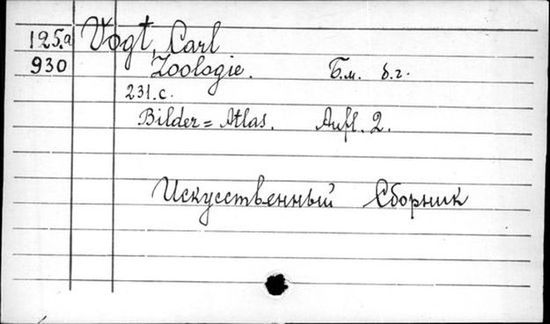 125a Vogt, Carl
930 Zoologie. Б.м. б.г.
231.с.
Bilder=Atlas. Aufl. 2.
Искусственный Сборник